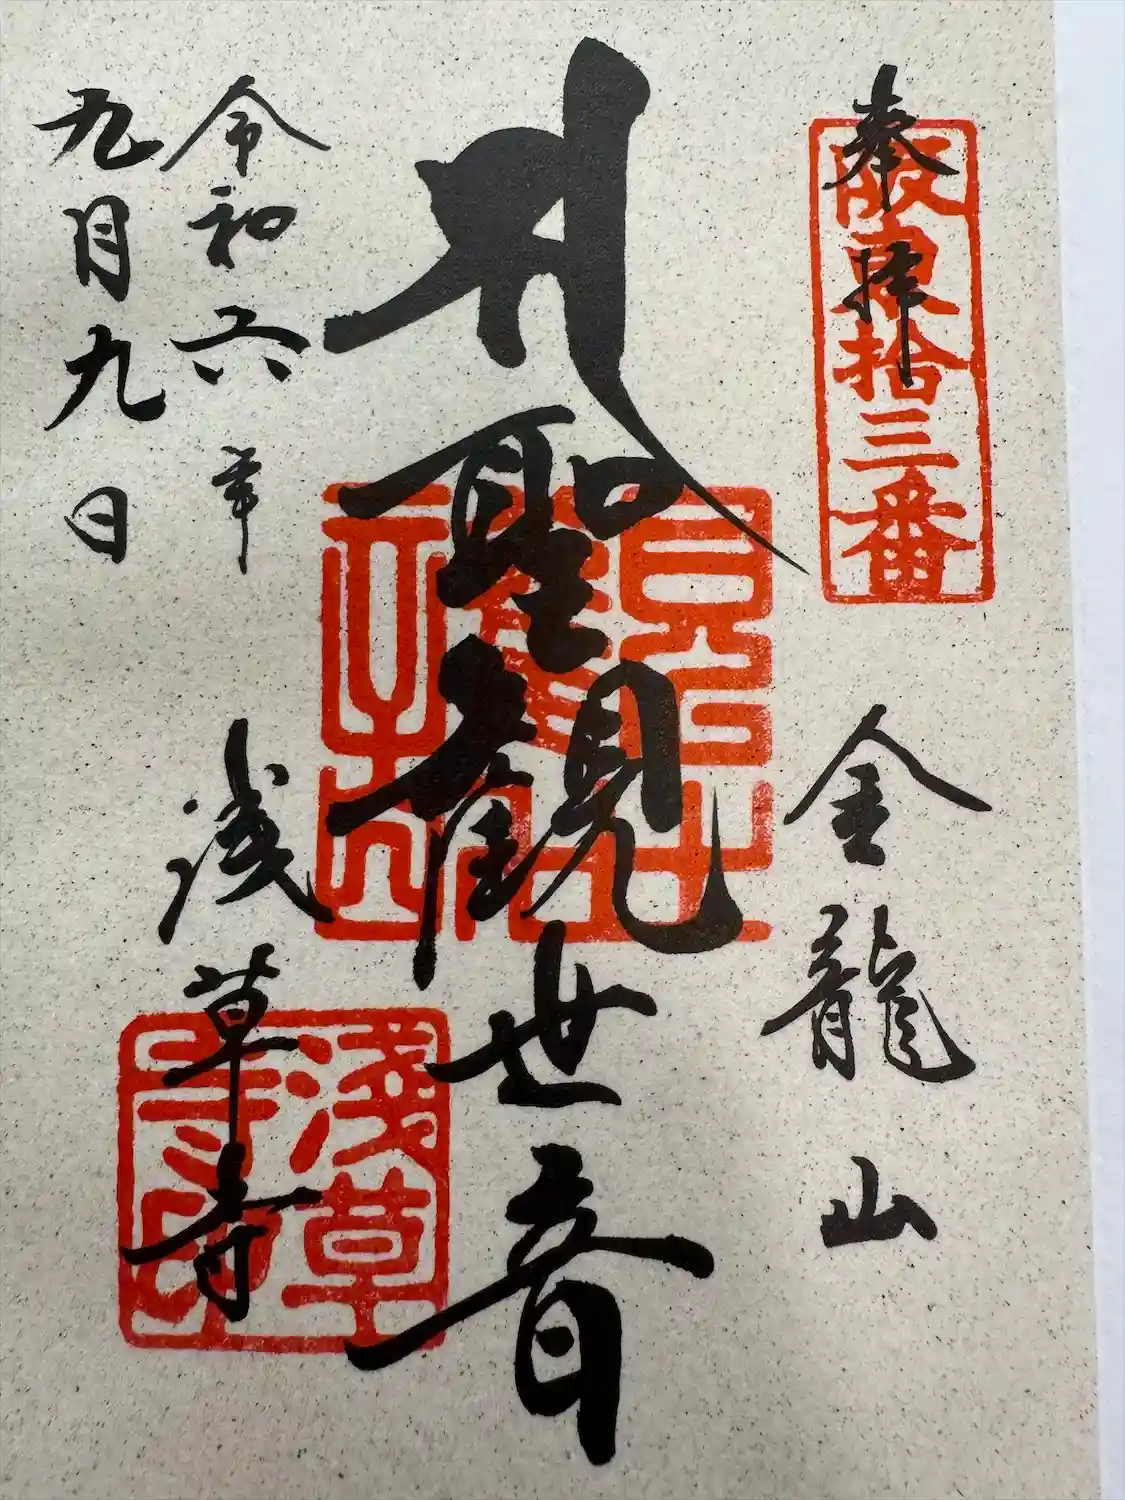 奉拝
阪東拾三番
金龍山
聖観世音
令和六年
九月九日
浅草寺
淺草寺印